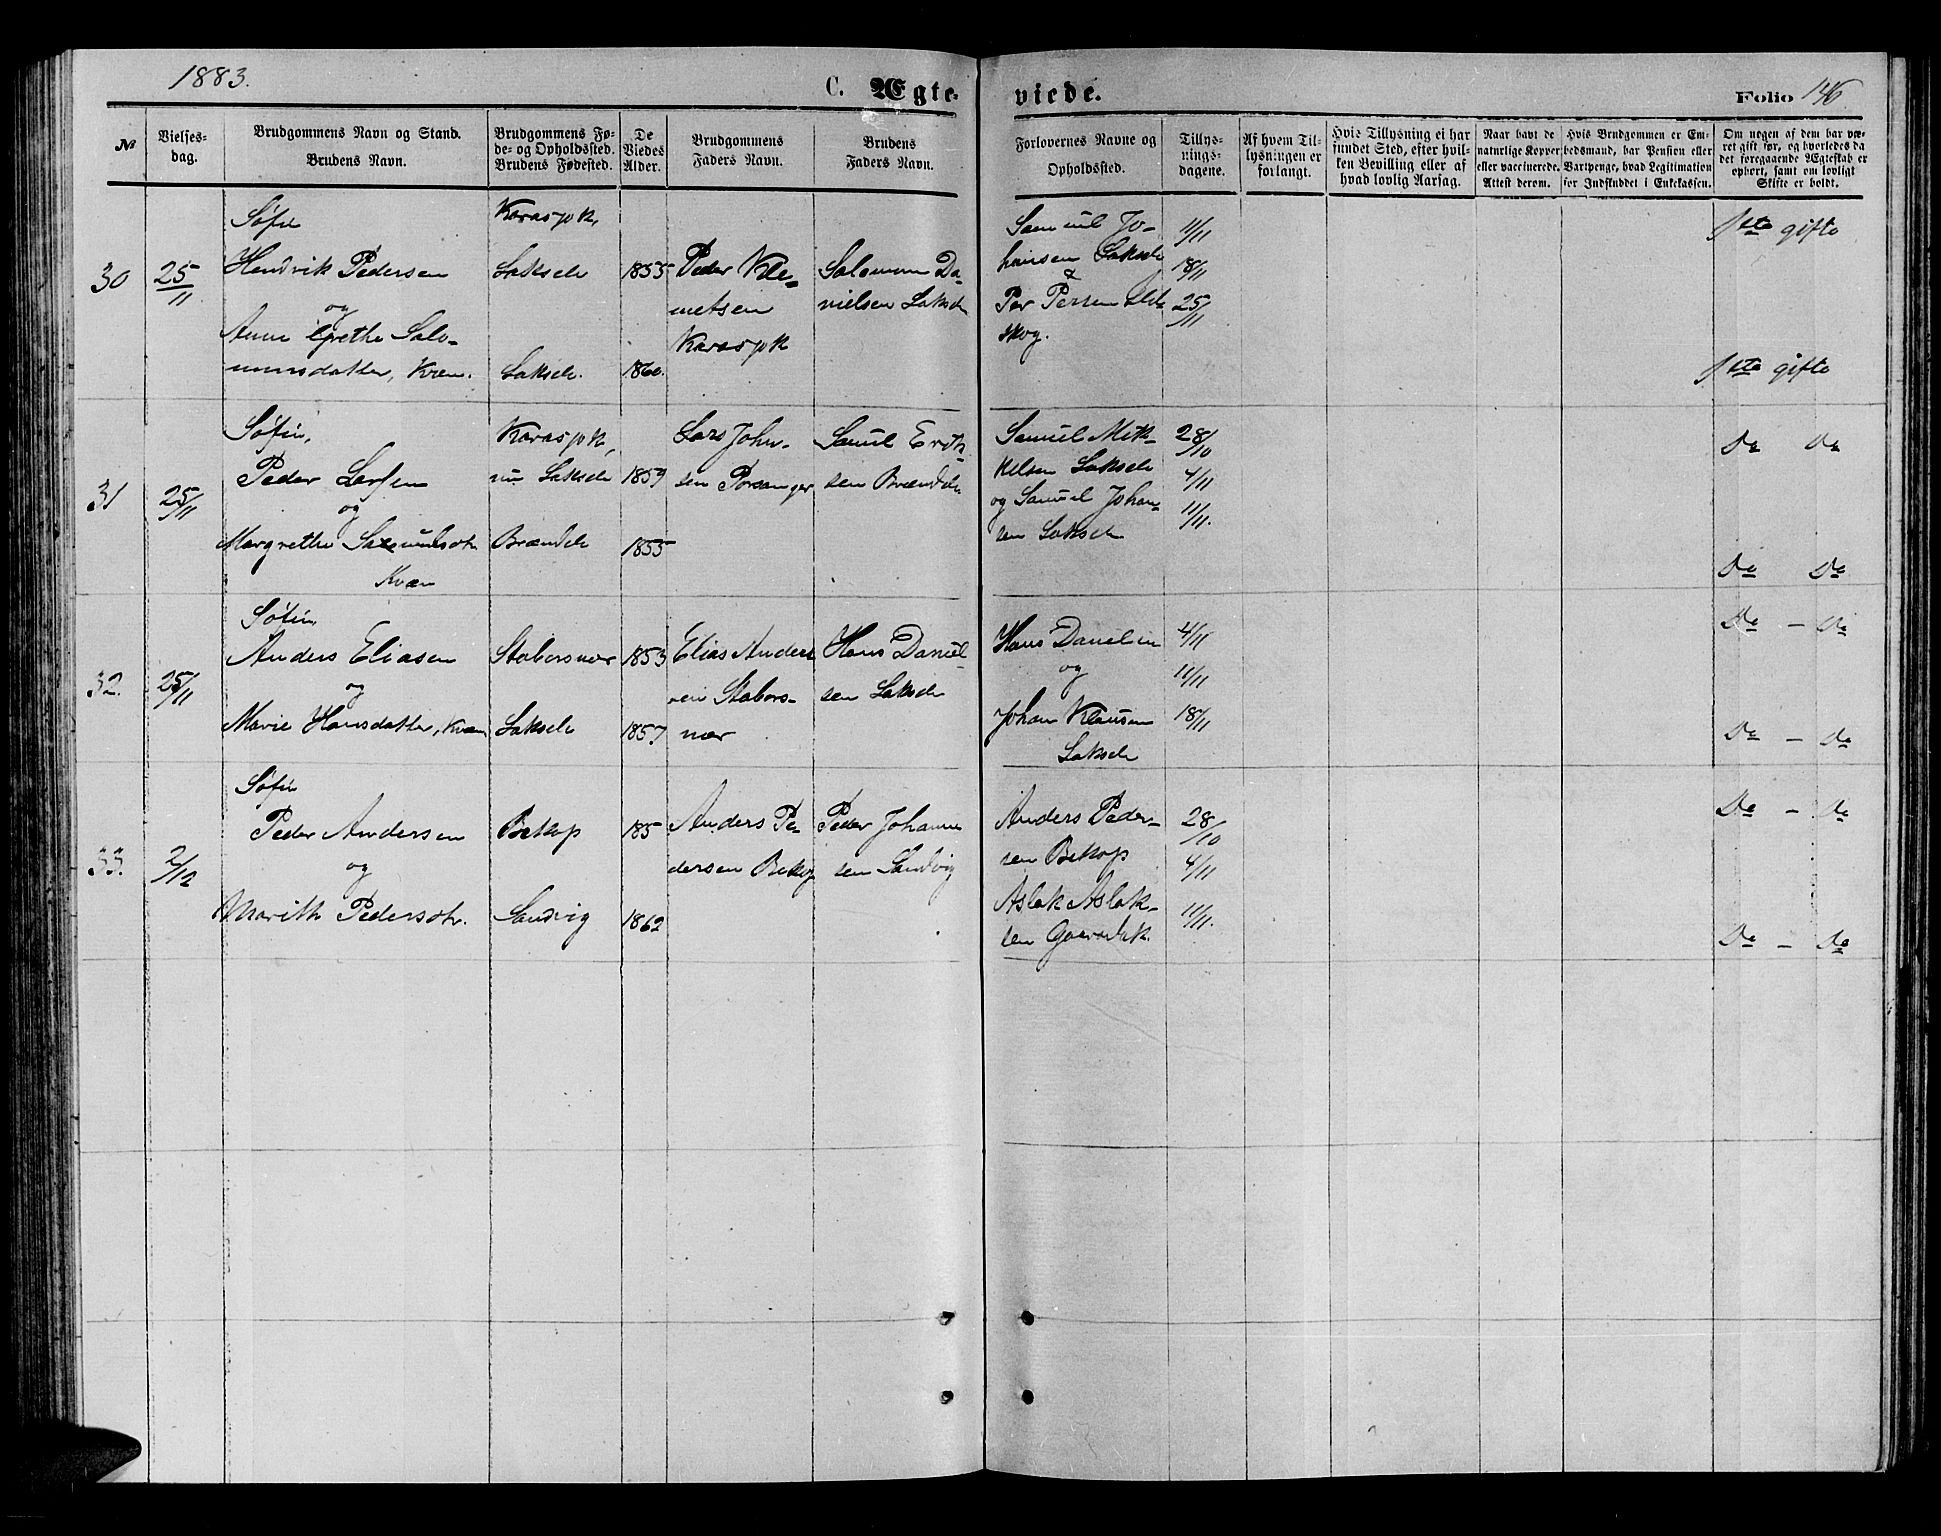 1883.
C. Ægte-
viede.
Folio 146
№
Vielses-
dag.
Brudgommens Navn og Stand.
Brudens Navn.
Brudgommens Fø-
de- og Opholdssted.
Brudens Fødested.
De
Viedes
Alder.
Brudgommens
Faders Navn.
Brudens
Faders Navn.
Forlovernes Navne og
Opholdssted.
Tillys-
nings-
dagene.
Af hvem Til-
lysningen er
forlangt.
Hvis Tillysning ei har
fundet Sted, efter hvil-
ken Bevilling eller af
hvad lovlig Aarsag.
Naar havt de
naturlige Kopper
eller vaccinerede.
Attest derom.
Hvis Brudgommen er Em-
bedsmand, har Pension eller
Vartpenge, hvad Legitimation
for Indskuddet i Enkekassen.
Om nogen af dem har væ-
ret gift før, og hvorledes da
det foregaaende Ægteskab er
ophørt, samt om lovligt
Skifte er holdt.
30
25/11
Søfin
Hendrik Pedersen
og
Anne Grethe Salo-
monsdatter, Kvæn.
Karasjok,
Lakselv
Lakselv.
1855
1860.
Peder Kle-
metsen
Karasjok
Salomon Da-
nielsen Lakselv
Samuel Jo-
hansen Lakselv
&
Per Persen
skog.
11/11
18/11
25/11
1ste gifte
1ste gifte
31
25/11
Søfin,
Peder Larsen
og
Margrethe Samuelsdtr
Kvæn
Karasjok,
nu Lakselv
Brændelv
1859
1855
Lars John-
sen Porsanger
Samuel Erik-
sen Brændelv
Samuel Mik-
kelsen Lakselv
og Samuel Johan-
sen Lakselv
28/10
4/11
11/11.
Do Do
Do Do
32.
25/11
Søfin,
Anders Eliasen
og
Marie Hansdatter, Kvæn
Stabersnes
Lakselv
1853
1857
Elias Anders
sen Stabers-
nes
Hans Daniel-
sen Lakselv
Hans Danielsen
og
Johan Klausen
Lakselv
4/11
11/11
18/11
Do - Do
Do - Do
33.
2/12
Søfin
Peder Andersen
og
Marith Pedersdtr.
Bekop
Sandvig
185
1862
Anders Pe-
dersen Bekop
Peder Johann
sen Sandvig
Anders Peder-
sen Bekop
Aslak Aslak-
sen
28/10
4/11
11/11.
Do - Do
Do - Do